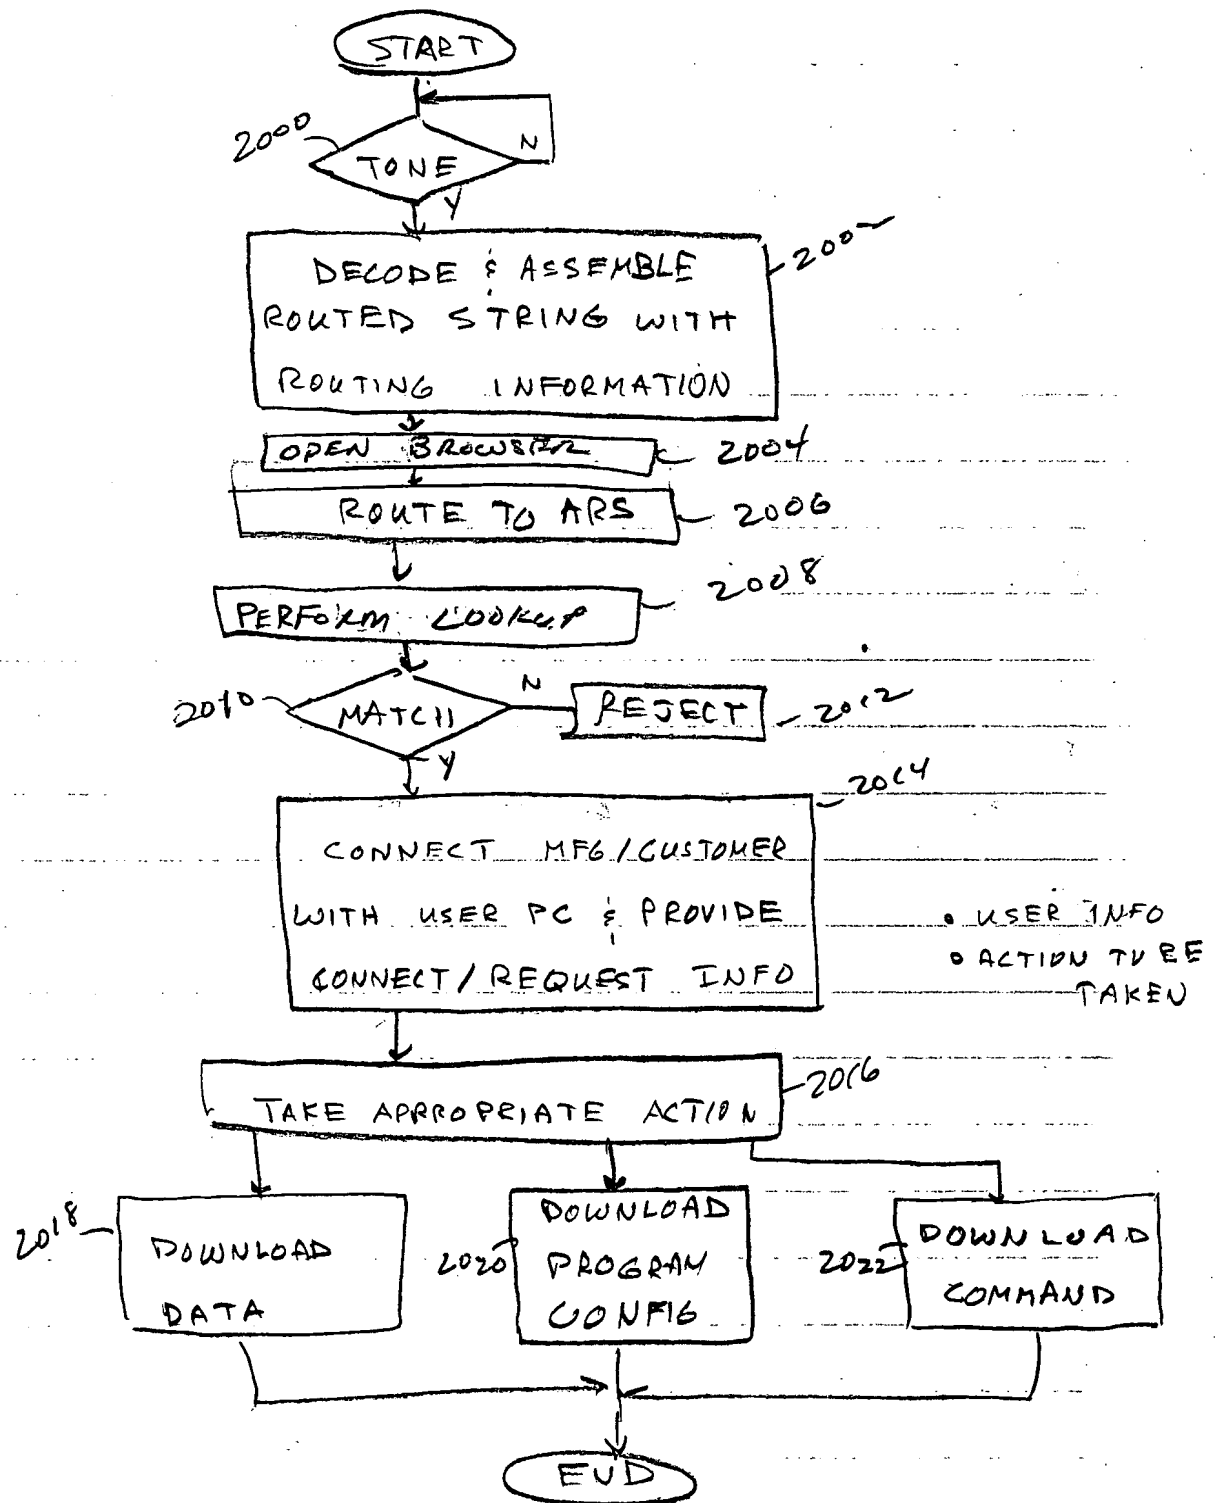 START
2000
TONE
N
Y
DECODE & ASSEMBLE
ROUTED STRING WITH
ROUTING INFORMATION
2002
OPEN BROWSER
2004
ROUTE TO ARS
2006
PERFORM LOOKUP
2008
2010
MATCH
N
REJECT
2012
Y
2014
CONNECT MFG/CUSTOMER
WITH USER PC & PROVIDE
CONNECT/REQUEST INFO
• USER INFO
• ACTION TO BE
TAKEN
2016
TAKE APPROPRIATE ACTION
2018
DOWNLOAD
DATA
2020
DOWNLOAD
PROGRAM
CONFIG
2022
DOWNLOAD
COMMAND
END